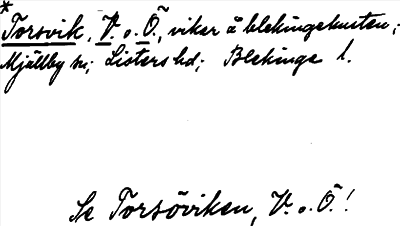 * Torsvik, V. o. Ö., vikar å blekingekusten;
Mjällby sn; Listers hd; Blekinge l.
Se Torsöviken, V. o. Ö.!